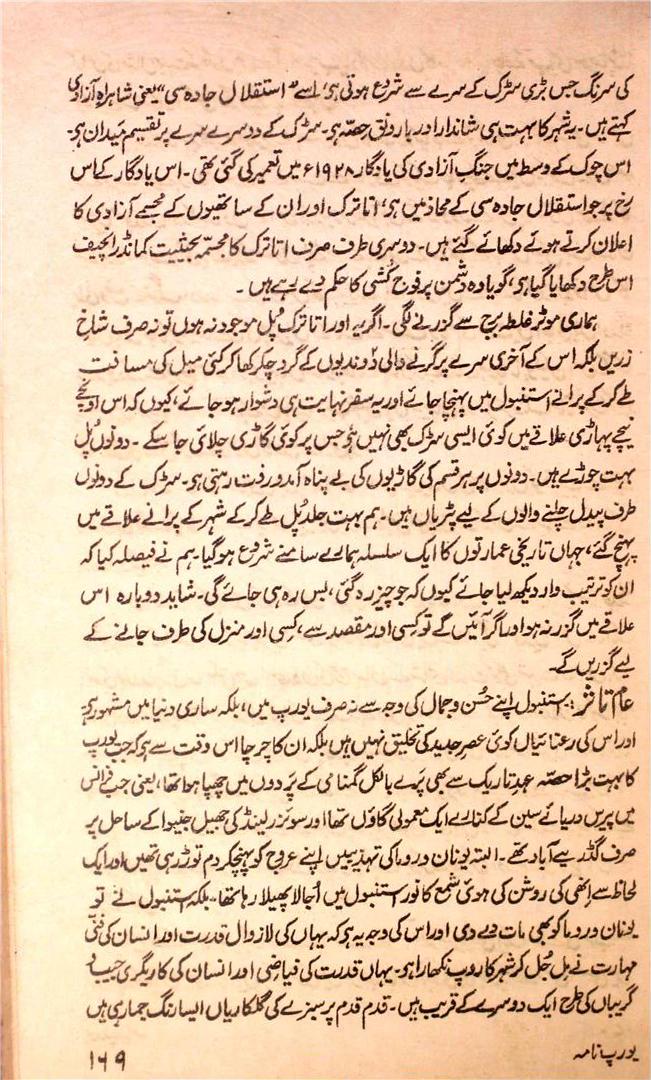 کی سرنگ جس بڑی سڑک کے سرے سے شروع ہوتی ہی، اسے "استقلال جادہ سی" یعنی شاہراہِ آزادی
کہتے ہیں۔ یہ شہر کا بہت ہی شاندار اور بارونق حصّہ ہی۔ سڑک کے دوسرے سرے پر تقسیم میدان ہی۔
اس چوک کے وسط میں جنگِ آزادی کی یادگار ۱۹۲۸ء میں تعمیر کی گئی تھی۔ اس یادگار کے اس
رخ پر جو استقلال جادہ سی کے محاذ میں ہی، اتاترک اور ان کے ساتھیوں کے مجسمے آزادی کا
اعلان کرتے ہوئے دکھائے گئے ہیں۔ دوسری طرف صرف اتاترک کا مجسّمہ بحیثیت کمانڈر انچیف
اس طرح دکھایا گیا ہی، گویا وہ دشمن پر فوج کشی کا حکم دے رہے ہیں۔
ہماری موٹر غلطہ برج سے گزرنے لگی۔ اگر یہ اور اتاترک پُل موجود نہ ہوں تو نہ صرف شاخِ
زریں بلکہ اس کے آخری سرے پر گرنے والی دو ندیوں کے گرد چکر کھا کر کئی میل کی مسافت
طے کر کے پرانے استنبول میں پہنچا جائے اور یہ سفر نہایت ہی دشوار ہو جائے، کیوں کہ اس اونچے
نیچے پہاڑی علاقے میں کوئی ایسی سڑک بھی نہیں ہی جس پر کوئی گاڑی چلائی جا سکے۔ دونوں پُل
بہت چوڑے ہیں۔ دونوں پر ہر قسم کی گاڑیوں کی بے پناہ آمدورفت رہتی ہی۔ سڑک کے دونوں
طرف پیدل چلنے والوں کے لیے پٹریاں ہیں۔ ہم بہت جلد پُل طے کر کے شہر کے پرانے علاقے میں
پہنچ گئے، جہاں تاریخی عمارتوں کا ایک سلسلہ ہمارے سامنے شروع ہو گیا۔ ہم نے فیصلہ کیا کہ
ان کو ترتیب وار دیکھ لیا جائے کیوں کہ جو چیز رہ گئی، بس رہ ہی جائے گی۔ شاید دوبارہ اس
علاقے میں گزر نہ ہو اور اگر آئیں گے تو کسی اور مقصد سے، کسی اور منزل کی طرف جانے کے
لیے گزریں گے۔
عام تاثر: استنبول اپنے حُسن و جمال کی وجہ سے نہ صرف یورپ میں، بلکہ ساری دنیا میں مشہور ہی
اور اس کی رعنائیاں کوئی عصرِ جدید کی تخلیق نہیں ہیں بلکہ ان کا چرچا اس وقت سے ہی کہ جب یورپ
کا بہت بڑا حصّہ عہدِ تاریک سے بھی پَرے بالکل گمنامی کے پَردوں میں چھپا ہوا تھا، یعنی جب فرانس
میں پرس دریائے سین کے کنارے ایک معمولی گاؤں تھا اور سوئزرلینڈ کی جھیل جنیوا کے ساحل پر
صرف گڈریے آباد تھے۔ البتہ یونان و روما کی تہذیبیں اپنے عروج کو پہنچکر دم توڑ رہی تھیں اور ایک
لحاظ سے انھی کی روشن کی ہوئی شمع کا نور استنبول میں اُجالا پھیلا رہا تھا۔ بلکہ استنبول نے تو
یونان و روما کو بھی مات دے دی اور اس کی وجہ یہ ہی کہ یہاں کی لازوال قدرت اور انسان کی فنّی
مہارت نے مِل جُل کر شہر کا روپ نکھارا ہی۔ یہاں قدرت کی فیاضی اور انسان کی کاریگری جیب و
گریباں کی طرح ایک دوسرے کے قریب ہیں۔ قدم قدم پر سبزے کی گلکاریاں ایسا رنگ جما رہی ہیں
یورپ نامہ
۱۶۹